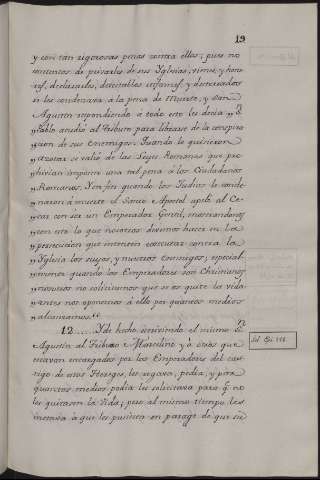 19
y con tan rigorosas penas contra ellos; pues no
contentos de privarlos de sus Yglesias, vienes, y hono-
res, declararlos, detestables infames, y desterrados
si los condenava à la pena de Muerte, y San
Agustin respondiendo à todo esto les decia „ Sⁿ
„ Pablo acudio al Tribuno para librarse de la conspira
„ cion de sus Enemigos. Quando le quisieron
„ azotar se valiò de las Leyes Romanas que pro-
„ hivian imponer una tal pena à los Ciudadanos
„ Romanos. Y en fin quando los Judios le conde-
„ naron à muerte el Santo Apostol apelò al Ce-
„ sar con ser un Emperador Gentil, mostrandonos
„ con esto lo que nosotros devemos hacer en la
„ persecucion que intenten executar contra la
„ Yglesia los suyos, y nuestros Enemigos; especial-
„ mente quando los Emperadores son Christianos
„ nosotros no solicitamos que se os quite la vida
„ antes nos oponemos à ello por quantos medios
„ alcanzamos.“
12..... Y de hecho escriviendo el mismo Sⁿ
Agustin al Tribuno Marcelino y à otros que
estavan encargados por los Emperadores del cas-
tigo de estos Hereges, les rogava, pedia, y por
quantos medios podia les solicitava para q.ᵉ no
les quitasen la Vida; pero al mismo tiempo les
instava à que les pusiesen en parage de que no